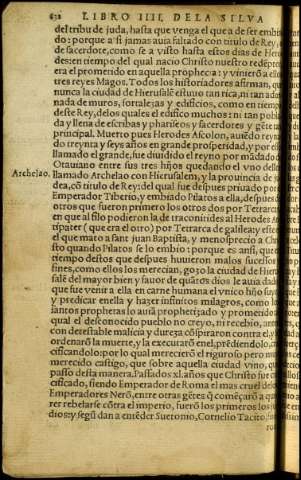 632 LIBRO IIII. DE LA SILVA
del tribu de juda, hasta que venga el que a de ser embia
do: porque a si jamas auia faltado con titulo de Rey, o
de sacerdote, como se a visto hasta estos dias de Hero
des: en tiempo del qual nacio Christo nuestro redēpto
era el prometido en aquella prophecia: y viniero a ello
tres reyes Magos. Todos los historiadores afirman, que
nunca la ciudad de Hierusalē estuuo tan rica, ni tan ador
nada de muros, fortalezas y edificios, como en tiempo
deste Rey, delos quales el edifico muchos: ni tan pobla
da y llena de escribas y phariseos y sacerdotes y gēte
principal. Muerto pues Herodes Ascolon, auiēdo reyna
do treynta y seys años en grande prosperidad, y por es
llamado el grande, fue diuidido el reyno por mādado
Otauiano entre sus tres hijos quedando el vno dellos
Archelao. llamado Archelao con Hierusalem, y la prouincia de
dea, cō titulo de Rey: del qual fue despues priuado por
Emperador Tiberio, y embiado Pilatos a ella, despues
otros que fueron primero los otros dos por Tetrarcas
en que al filo podieron la de traconitides al Herodes
tipater (que era el otro) por Tetrarca de galilea: y este
el que mato a sant juan Baptista, y menosprecio a Chri
sto quando Pilatos se lo embio: porque es ansi, que
tiempo destos que despues huuieron malos sucessos
fines, como ellos los merecian, gozo la ciudad de Hieru
salē del mayor bien y fauor de quātos dios le auia dado
que fue venir a ella en carne humana el vnico hijo suyo
y predicar enella y hazer infinitos milagros, como lo
santos prophetas lo auiā prophetizado y prometido
qual el desconocido pueblo no creyo, ni recebio, antes
con detestable malicia y dureza cōspiraron contra el, y
ordenarō la muerte, y la executarō enel, prēdiendolo, cru
cificandolo: por lo qual merecierō el riguroso pero muy
merecido castigo, que sobre aquella ciudad vino, que
passo desta manera. Passados xl. años que Christo fue cru
cificado, siendo Emperador de Roma el mas cruel delos
Emperadores Nerō, entre otras gētes q̄ començarō a que
rer rebelarse cōtra el imperio, fuerō los primeros los ju
dios: y segū dan a entēder Suetonio, Cornelio Tacito,